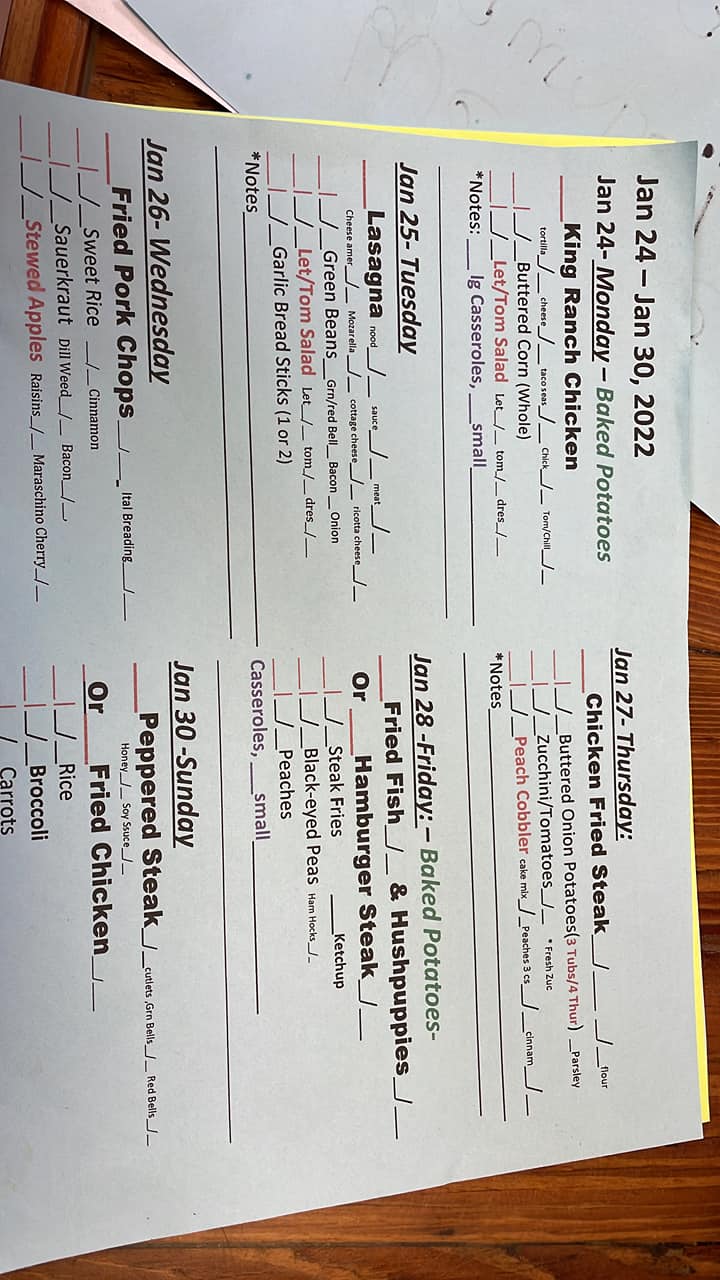 Jan 24 – Jan 30, 2022
Jan 24- Monday – Baked Potatoes
___King Ranch Chicken
tortilla__/__ cheese__/__ taco seas__/__ Chick__/__ Tom/Chill__/__
__|__/__Buttered Corn (Whole)
__|__/__Let/Tom Salad Let__/__ tom__/__ dres__/__
*Notes: ___ lg Casseroles, ___small
Jan 25- Tuesday
___Lasagna nood __/__ sauce __/__ meat__/__
Cheese amer__/__ Mozarella__/__ cottage cheese__/__ ricotta cheese__/__
__|__/__Green Beans__ Grn/red Bell__ Bacon __ Onion
__|__/__Let/Tom Salad Let__/__ tom__/__ dres__/__
__|__/__Garlic Bread Sticks (1 or 2)
*Notes
Jan 26- Wednesday
___Fried Pork Chops__/__ Ital Breading__/__
__|__/__Sweet Rice __/__ Cinnamon
__|__/__Sauerkraut Dill Weed__/__ Bacon__/__
__|__/__Stewed Apples Raisins__/__ Maraschino Cherry__/__
Jan 27- Thursday:
___Chicken Fried Steak__/__ __/__flour
__|__/__Buttered Onion Potatoes(3 Tubs/4 Thur) __Parsley
__|__/__Zucchini/Tomatoes__/__ * Fresh Zuc
__|__/__Peach Cobbler cake mix__/__Peaches 3 cs__/__cinnam__/__
*Notes
Jan 28 -Friday: – Baked Potatoes-
___Fried Fish__/__ & Hushpuppies__/__
Or ___Hamburger Steak__/__
__|__/__Steak Fries ___Ketchup
__|__/__Black-eyed Peas Ham Hocks__/__
__|__/__Peaches
Casseroles, ___small
Jan 30 -Sunday
___Peppered Steak__/__cutlets ,Grn Bells__/__ Red Bells__/__
Honey__/__ Soy Ssuce__/__
Or ___Fried Chicken__/__
__|__/__Rice
__|__/__Broccoli
__|__/__Carrots